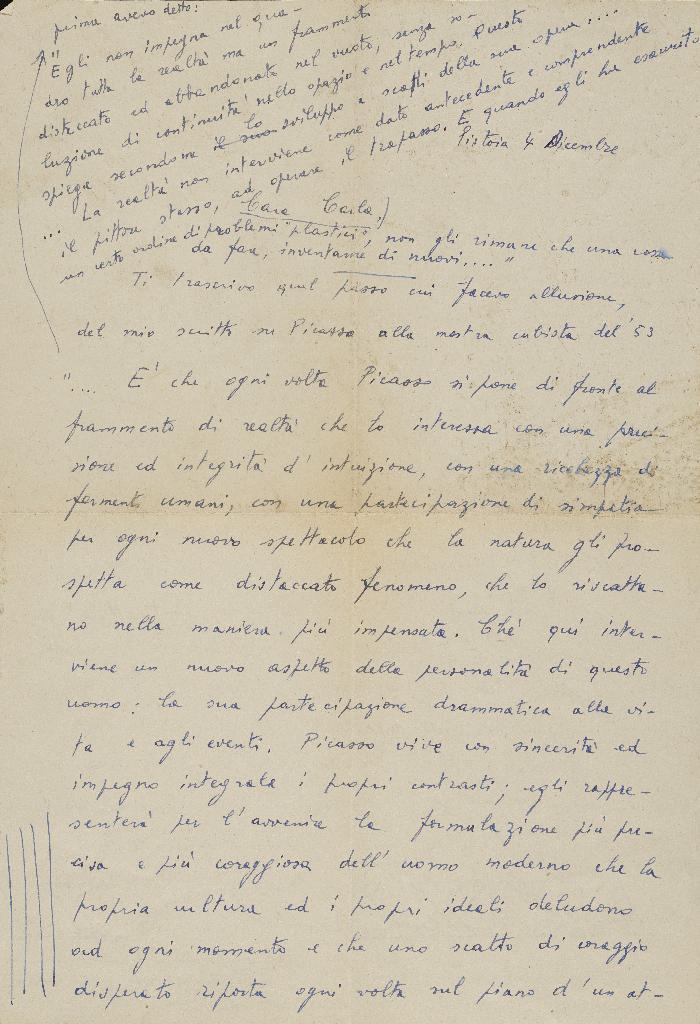 prima avevo detto:
"Egli non impegna nel qua-
dro tutta la realtà ma un frammento
distaccato ed abbandonato nel vuoto, senza so-
luzione di continuità nello spazio e nel tempo. Questo
spiega secondo me lo sviluppo a scatti della sua opera ....
... La realtà non interviene come dato antecedente e comprendente
il pittore stesso, ad operare il trapasso. E quando egli ha esaurito
un certo ordine di problemi "plastici", non gli rimane che una cosa
da fare, inventarne di nuovi,..."
Pistoia 4 Dicembre
Cara Carla,
Ti trascrivo quel passo cui facevo allusione,
del mio scritto su Picasso alla mostra cubista del '53
".... E' che ogni volta Picasso si pone di fronte al
frammento di realtà che lo interessa con una preci-
sione ed integrità d'intuizione, con una ricchezza di
fermenti umani, con una partecipazione di simpatia
per ogni nuovo spettacolo che la natura gli pro-
spetta come distaccato fenomeno, che lo riscatta-
no nella maniera più impensata. Ché quì inter-
viene un nuovo aspetto della personalità di questo
uomo: la sua partecipazione drammatica alla vi-
ta e agli eventi. Picasso vive con sincerità ed
impegno integrale i propri contrasti; egli rappre-
senterà per l'avvenire la formulazione più pre-
cisa e più coraggiosa dell'uomo moderno che la
propria cultura ed i propri ideali deludono
ad ogni momento e che uno scatto di coraggio
disperato riporta ogni volta sul piano d'un at-